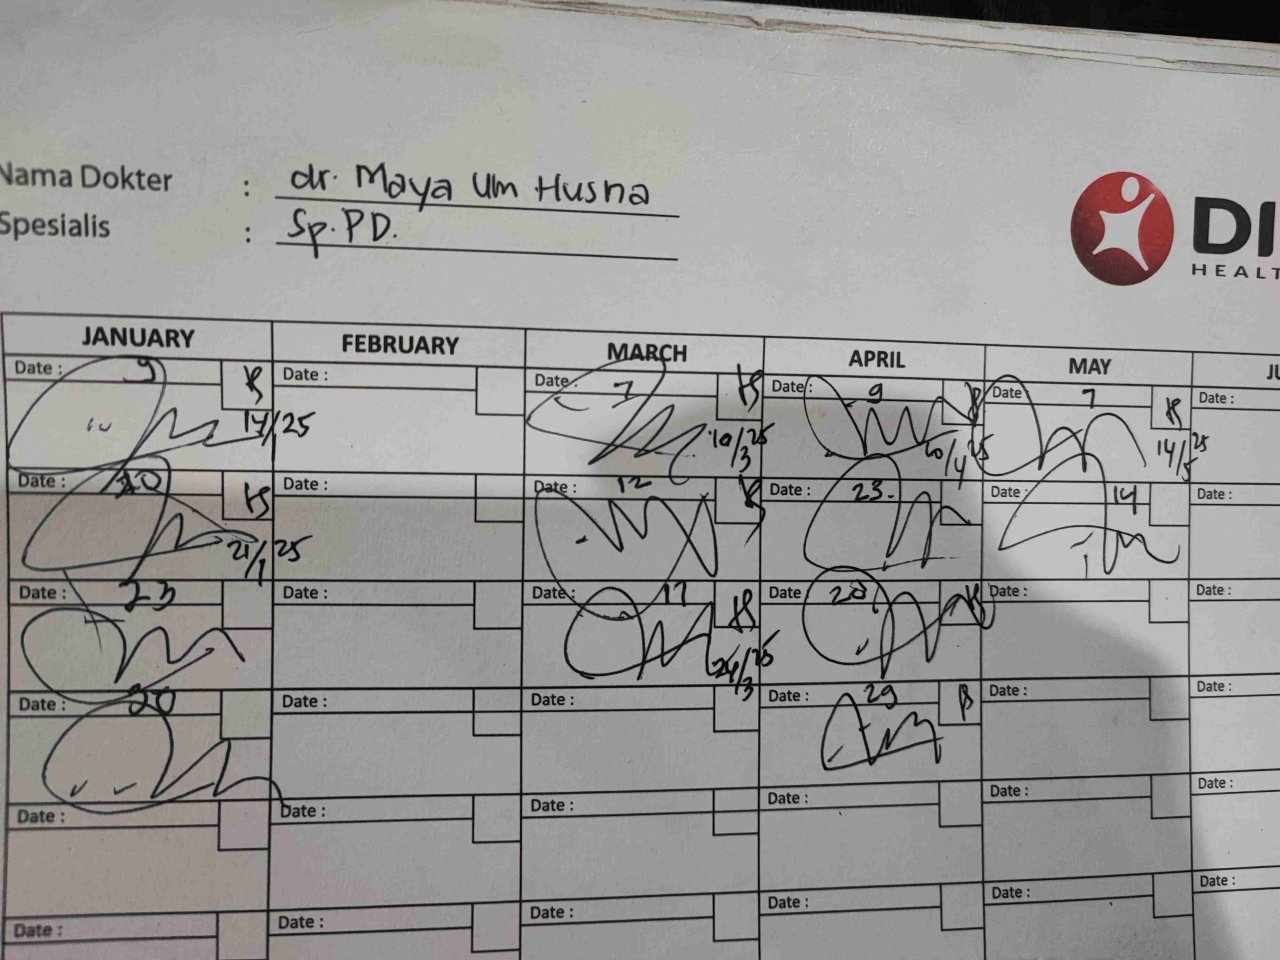 Nama Dokter : dr. Maya Um Husna
Spesialis : Sp.PD.
DI
HEALT
JANUARY FEBRUARY MARCH APRIL MAY JU
Date : 9 Date : Date : 7 Date : 9 Date 7 Date :
14/25 10/3 25 10/4 25 14/5 25
Date : 20 Date : Date : 12 Date : 23 Date : 14 Date :
21/1 25
Date : 23 Date : Date : 17 Date : 28 Date : Date :
24/3 25
Date : 20 Date : Date : Date : 29 Date : Date :
Date : Date : Date : Date : Date : Date :
Date : Date : Date : Date : Date : Date :